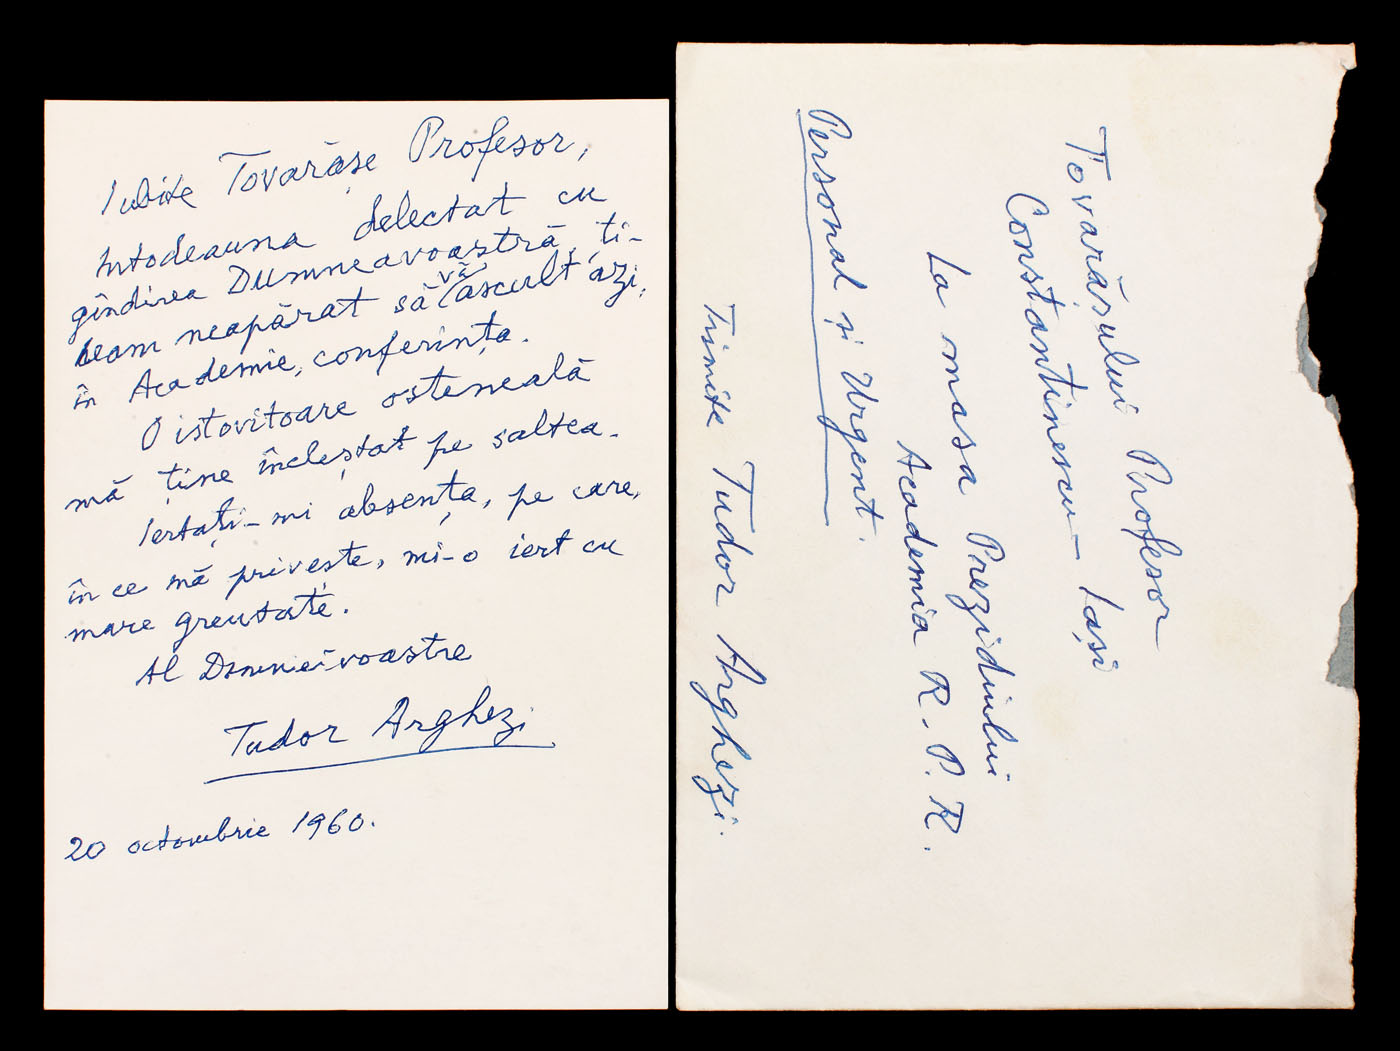 Iubite Tovarășe Profesor,
Întodeauna delectat cu
gîndirea Dumneavoastră, ți-
neam neapărat să vă ascult azi,
în Academie, conferința.
O istovitoare osteneală
mă ține încleștat pe saltea.
Iertați-mi absența, pe care,
în ce mă priveste, mi-o iert cu
mare greutate.
Al Dumneivoastre
Tudor Arghezi
20 octombrie 1960.
Tovarăsului Profesor
Constantinescu - Iași
La masa Prezidiului
Academia R. P. R.
Personal și Urgent.
Trimite Tudor Arghezi.